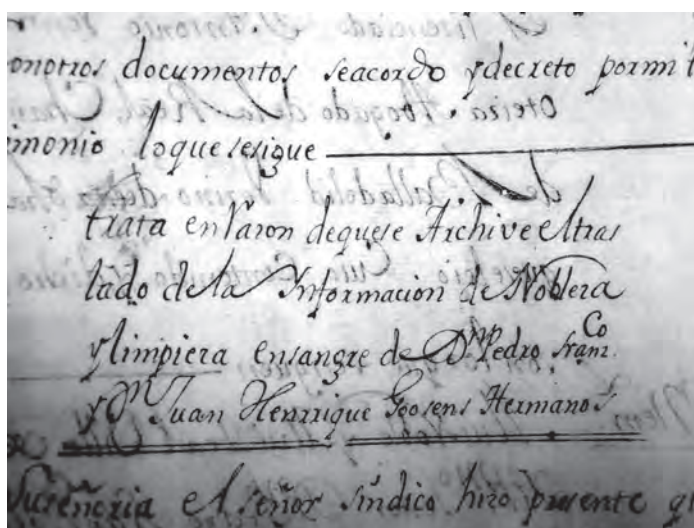 onotros documentos seacordo ydecreto pormi t
imonio loque sesigue
trata enrazon dequese Archive eltras
lado dela Informacion de Nobleza
ylimpieza ensangre de Dn. Pedro Franco.
y Dn. Juan Henrrique Goosens Hermanos
Suseñoria el señor sindico hizo presente q